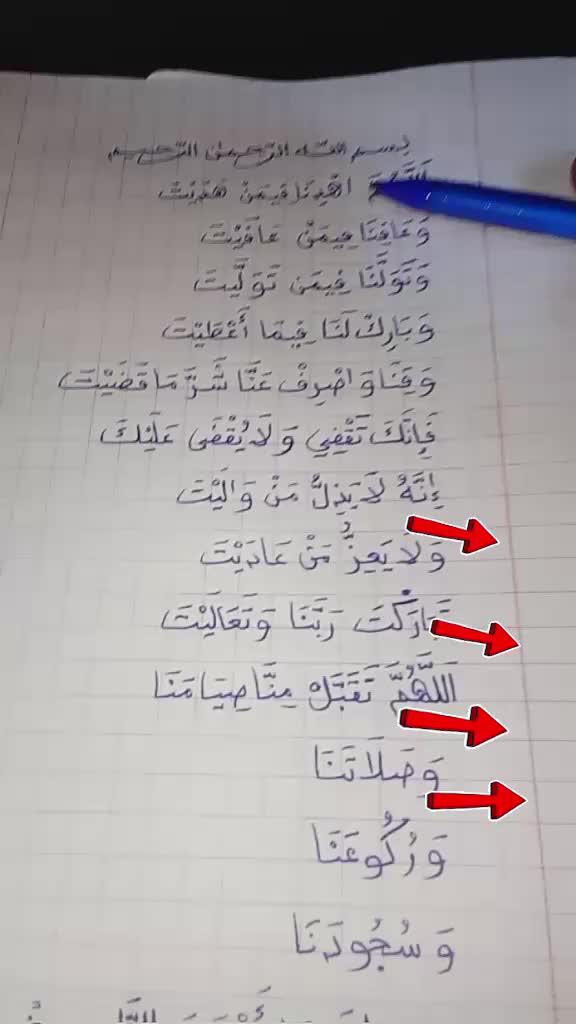 بسم الله الرحمن الرحيم
اَللَّهُمَّ اهْدِنَا فِيمَنْ هَدَيْتَ
وَعَافِنَا فِيمَنْ عَافَيْتَ
وَتَوَلَّنَا فِيمَن تَوَلَّيتَ
وَبَارِكْ لَنَا فِيمَا أَعْطَيْتَ
وَقِنَا وَاصْرِفْ عَنَّا شَرَّ مَا قَضَيْتَ
فَإِنَّكَ تَقْضِي وَلَا يُقْضَى عَلَيْكَ
إِنَّهُ لَا يَذِلُّ مَنْ وَالَيْتَ
وَلَا يَعِزُّ مَنْ عَادَيْتَ
تَبَارَكْتَ رَبَّنَا وَتَعَالَيْتَ
اَللَّهُمَّ تَقَبَّلْ مِنَّا صِيَامَنَا
وَصَلَاتَنَا
وَرُكُوعَنَا
وَسُجُودَنَا